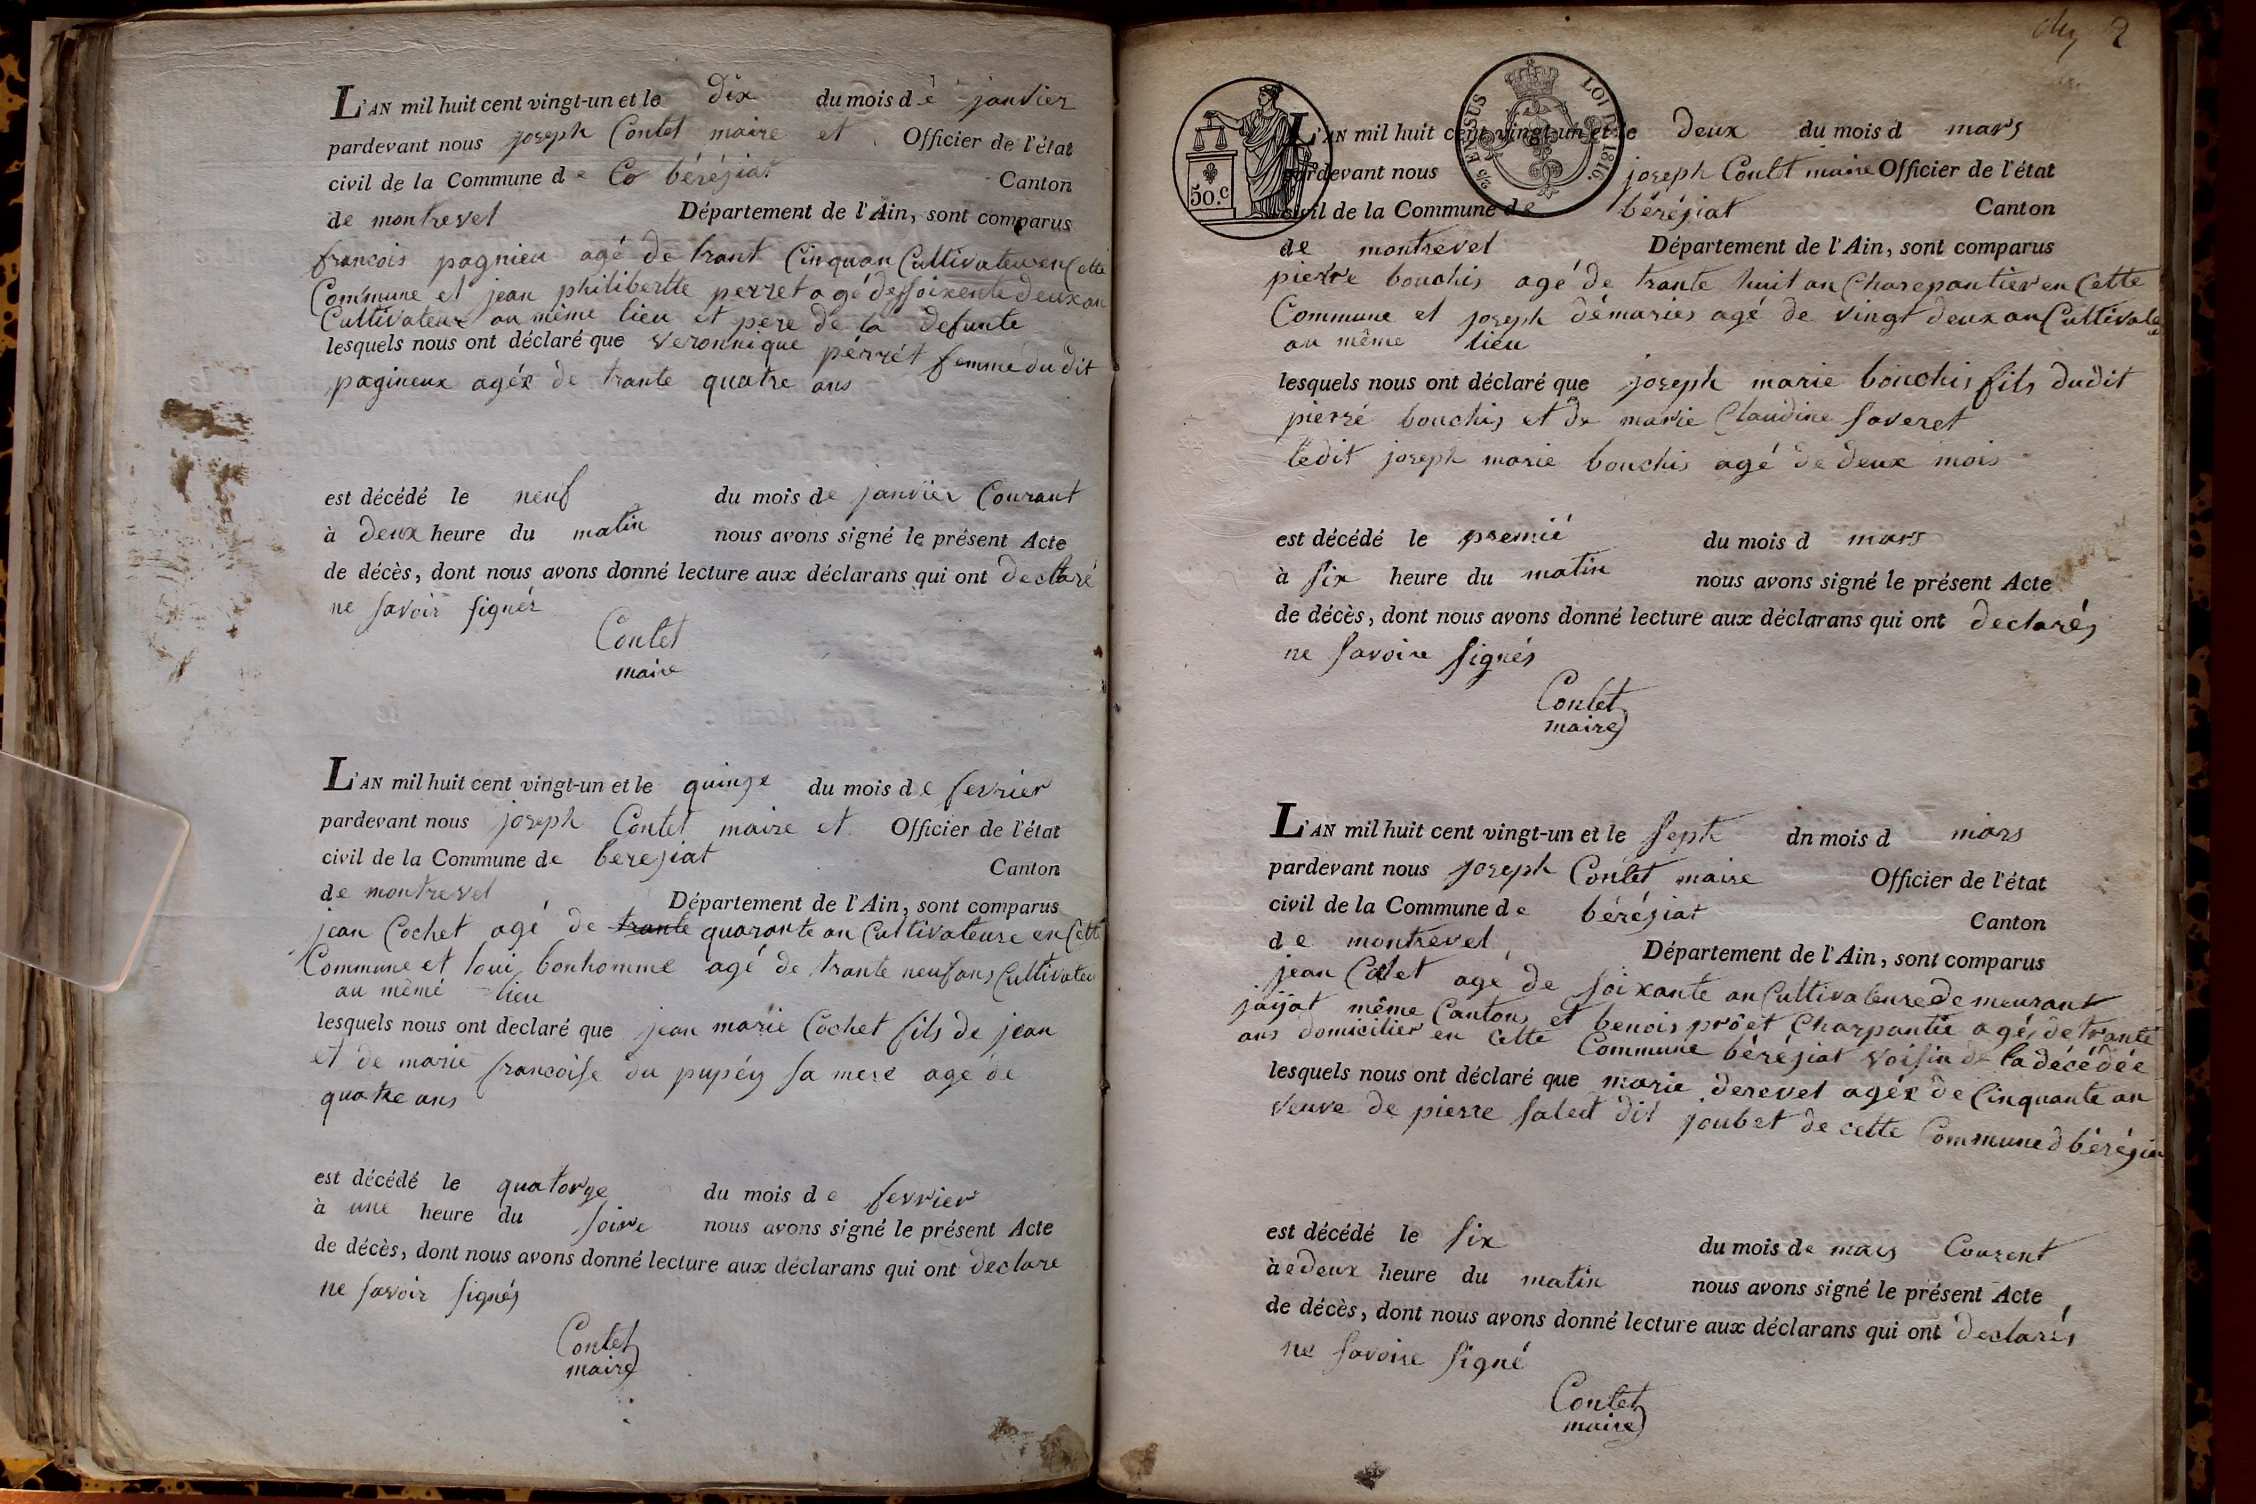 L'AN mil huit cent vingt-un et le dix du mois de janvier
pardevant nous joseph Contet maire et Officier de l'état
civil de la Commune de Co béréziat Canton
de montrevel Département de l'Ain, sont comparus
francois pagnieu agé de trant Cinquan Cultivateur en Cette
Commune et jean philibertte perret agé de soixente deux an
Cultivateur au même lieu et pere de la defunte
lesquels nous ont déclaré que veronnique pérrét femme du dit
pagineux agéz de trante quatre ans
est décédé le neuf du mois de janvier Courant
à deux heure du matin nous avons signé le présent Acte
de décès, dont nous avons donné lecture aux déclarans qui ont declaré
ne savoir signér
Contet
maire
L'AN mil huit cent vingt-un et le quinze du mois de fevrier
pardevant nous joseph Contet maire et Officier de l'état
civil de la Commune de bereziat Canton
de montrevel Département de l'Ain, sont comparus
jean Cochet agé de trante quarante an Cultivateure en Cette
Commune et loui bonhomme agé de trante neuf ans Cultivateu
au mêmé lieu
lesquels nous ont declaré que jean marie Cochet fils de jean
et de marie francoise du pupéy sa mere agé de
quatre ans
est décédé le quatorze du mois de fevrier
à une heure du soire nous avons signé le présent Acte
de décès, dont nous avons donné lecture aux déclarans qui ont declare
ne savoir signés
Contet
maire
2
50.C
2/5 EN SUS LOI DE 1816.
L'AN mil huit cent vingt-un et le deux du mois d mars
pardevant nous joseph Contet maire Officier de l'état
civil de la Commune de béréziat Canton
de montrevel Département de l'Ain, sont comparus
pierre bouchis agé de trante huit an Charepantier en Cette
Commune et joseph démaries agé de vingt deux an Cultivate
au même lieu
lesquels nous ont déclaré que joseph marie bouchis fils dudit
pierré bouchis et de marie Claudine saveret
ledit joseph marie bouchis agé de deux mois
est décédé le premié du mois d mars
à six heure du matin nous avons signé le présent Acte
de décès, dont nous avons donné lecture aux déclarans qui ont declarés
ne savoire signés
Contet
maire
L'AN mil huit cent vingt-un et le sept dn mois d mars
pardevant nous joseph Contet maire Officier de l'état
civil de la Commune de béréziat Canton
de montrevel Département de l'Ain, sont comparus
jean agé de soixante an Cultivateure demeurant
jayat même Canton et benois prôet Charpantié agés de trante
ans domicilier en Cette Commune béréziat voisin de la décédée
lesquels nous ont déclaré que marie derevel agéz de Cinquante an
veuve de pierre salet dit joubet de cette Commune d béréziat
est décédé le six du mois de mars Courent
à edeux heure du matin nous avons signé le présent Acte
de décès, dont nous avons donné lecture aux déclarans qui ont declarés
ne savoire signé
Contet
maire